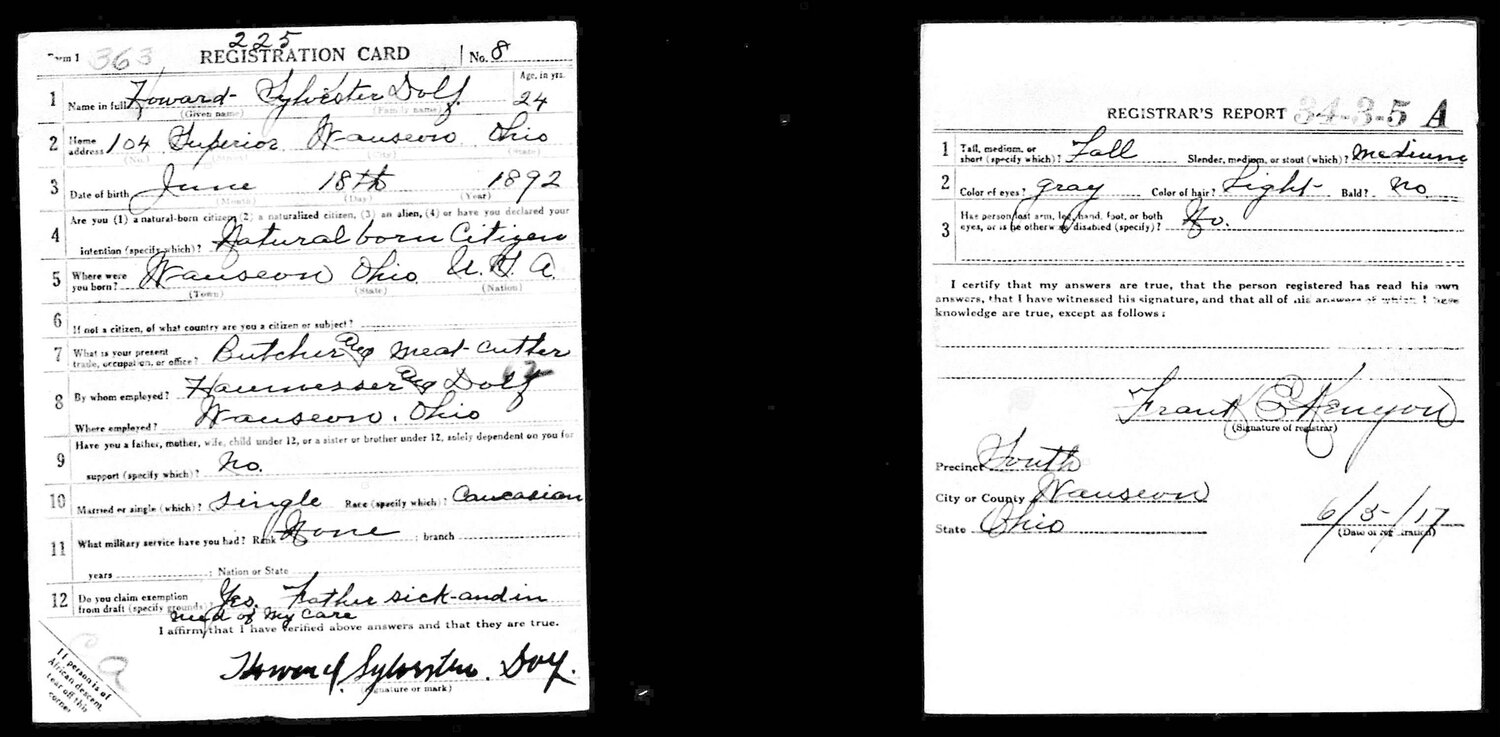 225
Form 1 363 REGISTRATION CARD No. 8
1 Name in full Howard Sylvester Dolf Age, in yrs. 24
(Given name) (Family name)
2 Home address 104 Superior Wauseon Ohio
(No.) (Street) (City) (State)
3 Date of birth June 18th 1892
(Month) (Day) (Year)
Are you (1) a natural-born citizen, (2) a naturalized citizen, (3) an alien, (4) or have you declared your
4 intention (specify which)? Natural born Citizen
5 Where were you born? Wauseon Ohio U.S.A.
(Town) (State) (Nation)
6 If not a citizen, of what country are you a citizen or subject?
7 What is your present trade, occupation, or office? Butcher and meat-cutter
8 By whom employed? Dolf
Where employed? Wauseon. Ohio
Have you a father, mother, wife, child under 12, or a sister or brother under 12, solely dependent on you for
9 support (specify which)? No.
10 Married or single (which)? Single Race (specify which)? Caucasian
11 What military service have you had? Rank None ; branch
years ; Nation or State
12 Do you claim exemption from draft (specify grounds)? Yes. Father sick-and in
need of my care
I affirm that I have verified above answers and that they are true.
Howard. Sylvester. Dolf.
(Signature or mark)
If person is of
African descent,
tear off this
corner
REGISTRAR'S REPORT 34-3-5 A
1 Tall, medium, or short (specify which)? Tall Slender, medium, or stout (which)? Medium
2 Color of eyes? Gray Color of hair? Light Bald? No
3 Has person lost arm, leg, hand, foot, or both eyes, or is he otherwise disabled (specify)? No.
I certify that my answers are true, that the person registered has read his own
answers, that I have witnessed his signature, and that all of his answers of which I have
knowledge are true, except as follows:
Frank E Kenyon
(Signature of registrar)
Precinct South
City or County Wauseon
State Ohio 6/5/17
(Date of registration)